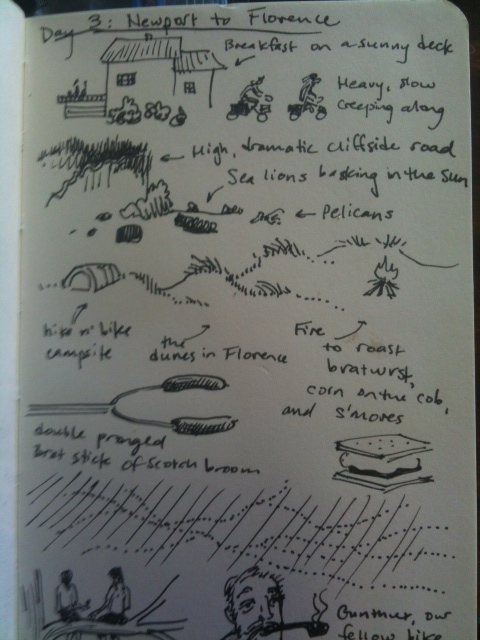 Day 3: Newport to Florence
Breakfast on a sunny deck
Heavy, slow
creeping along
High, dramatic cliffside road
Sea lions basking in the sun
Pelicans
hike n' bike
campsite
the
dunes in Florence
Fire
to roast
bratwurst,
corn on the cob,
and s'mores
double pronged
Brat stick of Scotch broom
Gunther, our
fellow bike